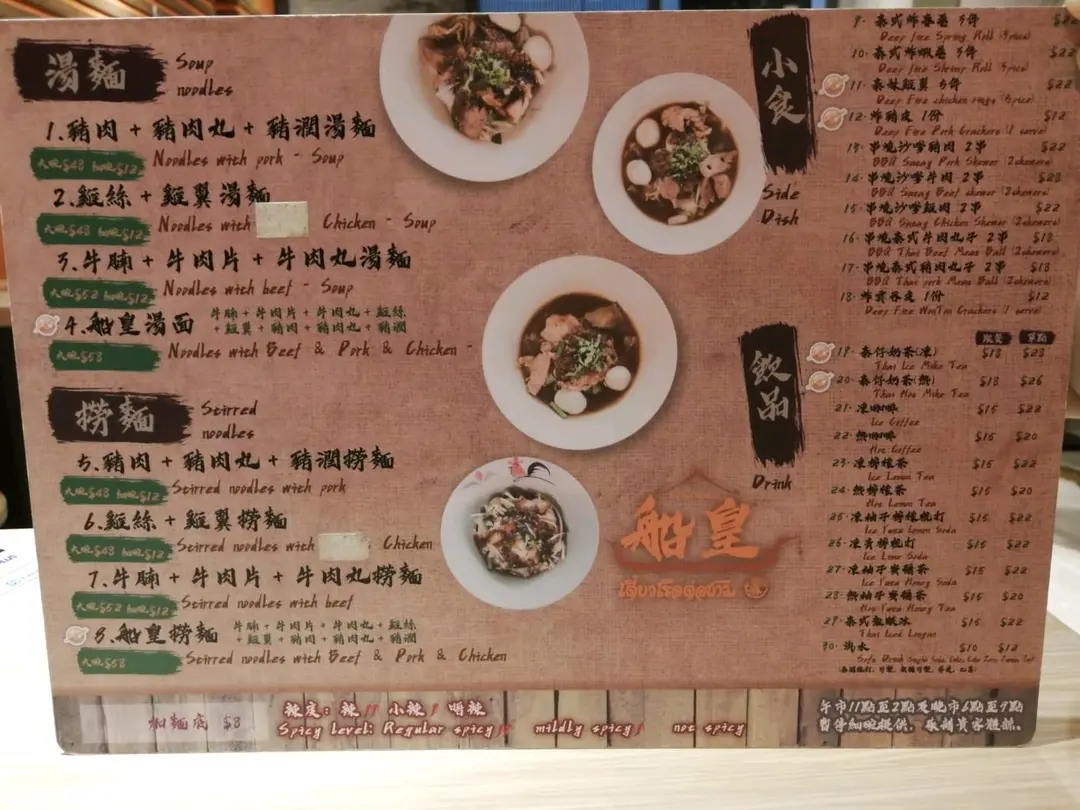 湯麵
Soup
noodles
1.豬肉 + 豬肉丸 + 豬潤湯麵
大碗$48 細碗$12
Noodles with pork - Soup
2.雞絲 + 雞翼湯麵
大碗$48 細碗$12
Noodles with Chicken - Soup
3.牛腩 + 牛肉片 + 牛肉丸湯麵
大碗$52 細碗$12
Noodles with beef - Soup
4.船皇湯面
牛腩+牛肉片+牛肉丸+雞絲
+雞翼+豬肉+豬肉丸+豬潤
大碗$58
Noodles with Beef & Pork & Chicken -
撈麵
Stirred
noodles
5.豬肉 + 豬肉丸 + 豬潤撈麵
大碗$48 細碗$12
Stirred noodles with pork
6.雞絲 + 雞翼撈麵
大碗$48 細碗$12
Stirred noodles with Chicken
7.牛腩 + 牛肉片 + 牛肉丸撈麵
大碗$52 細碗$12
Stirred noodles with beef
8.船皇撈麵
牛腩+牛肉片+牛肉丸+雞絲
+雞翼+豬肉+豬肉丸+豬潤
大碗$58
Stirred noodles with Beef & Pork & Chicken
船皇
小食
Side
Dish
9. 泰式炸春卷 5件
10. 泰式炸蝦卷 3件 $22
11. 泰妹雞翼 5件 $22
12. 炸豬皮 1份 $12
13. 串燒沙嗲豬肉 2串 $22
14. 串燒沙嗲牛肉 2串 $28
15. 串燒沙嗲雞肉 2串 $22
16. 串燒泰式牛肉丸子 2串 $18
17. 串燒泰式豬肉丸子 2串 $18
18. 炸雲吞皮 1份 $12
飲品
Drink
跟餐 單點
19. 泰仔奶茶(凍) $18 $28
20. 泰仔奶茶(熱) $18 $26
21. 凍咖啡 $15 $22
Ice Coffee
22. 熱咖啡 $15 $20
Hot Coffee
23. 凍檸檬茶 $15 $22
Ice Lemon Tea
24. 熱檸檬茶 $15 $20
Hot Lemon Tea
25. 凍柚子檸檬梳打 $15 $22
Ice Yuzu Lemon Soda
26. 凍青檸梳打 $15 $22
Ice Lime Soda
27. 凍柚子蜜糖茶 $15 $22
Ice Yuzu Honey Soda
28. 熱柚子蜜糖茶 $15 $20
Hot Yuzu Honey Tea
29. 泰式龍眼冰 $15 $22
Thai Iced Longan
30. 汽水 $10 $12
加麵底 $8
辣度: 辣 小辣 唔辣
Spicy Level: Regular spicy mildly spicy not spicy
午市11點至2點及晚市6點至9點
暫停細碗提供，敬請貴客體諒。